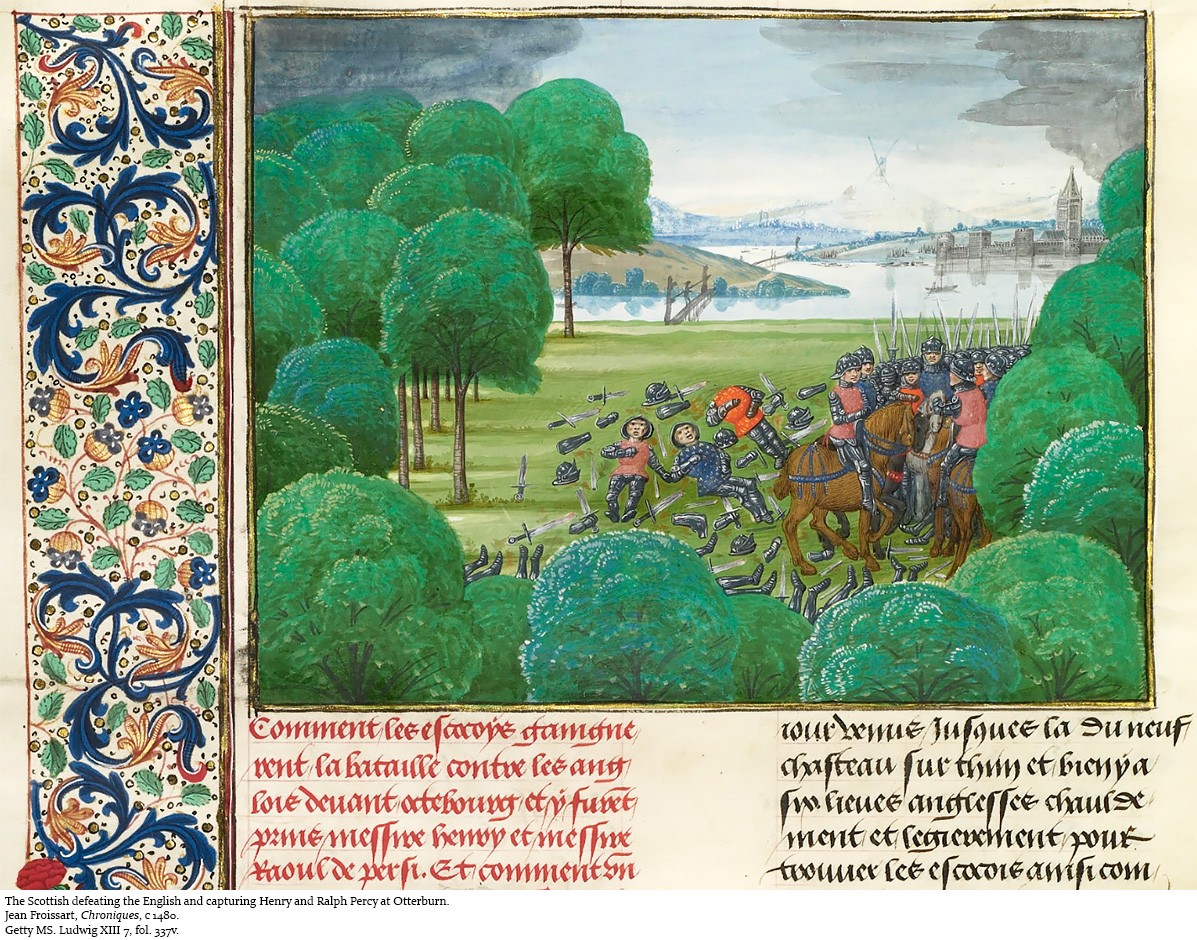 Comment les escocoys gaingne
rent la bataille contre les ang
lois deuant octebourg et y furēt
prins messire henry et messire
Raoul de persi. Et comment vn
iour venus Jusques la du neuf
chasteau sur thin et bien y a
six lieues anglesses chaulde
ment et legierement pour
trouuer les escocois ainsi com
The Scottish defeating the English and capturing Henry and Ralph Percy at Otterburn.
Jean Froissart, Chroniques, c 1480.
Getty MS. Ludwig XIII 7, fol. 337v.